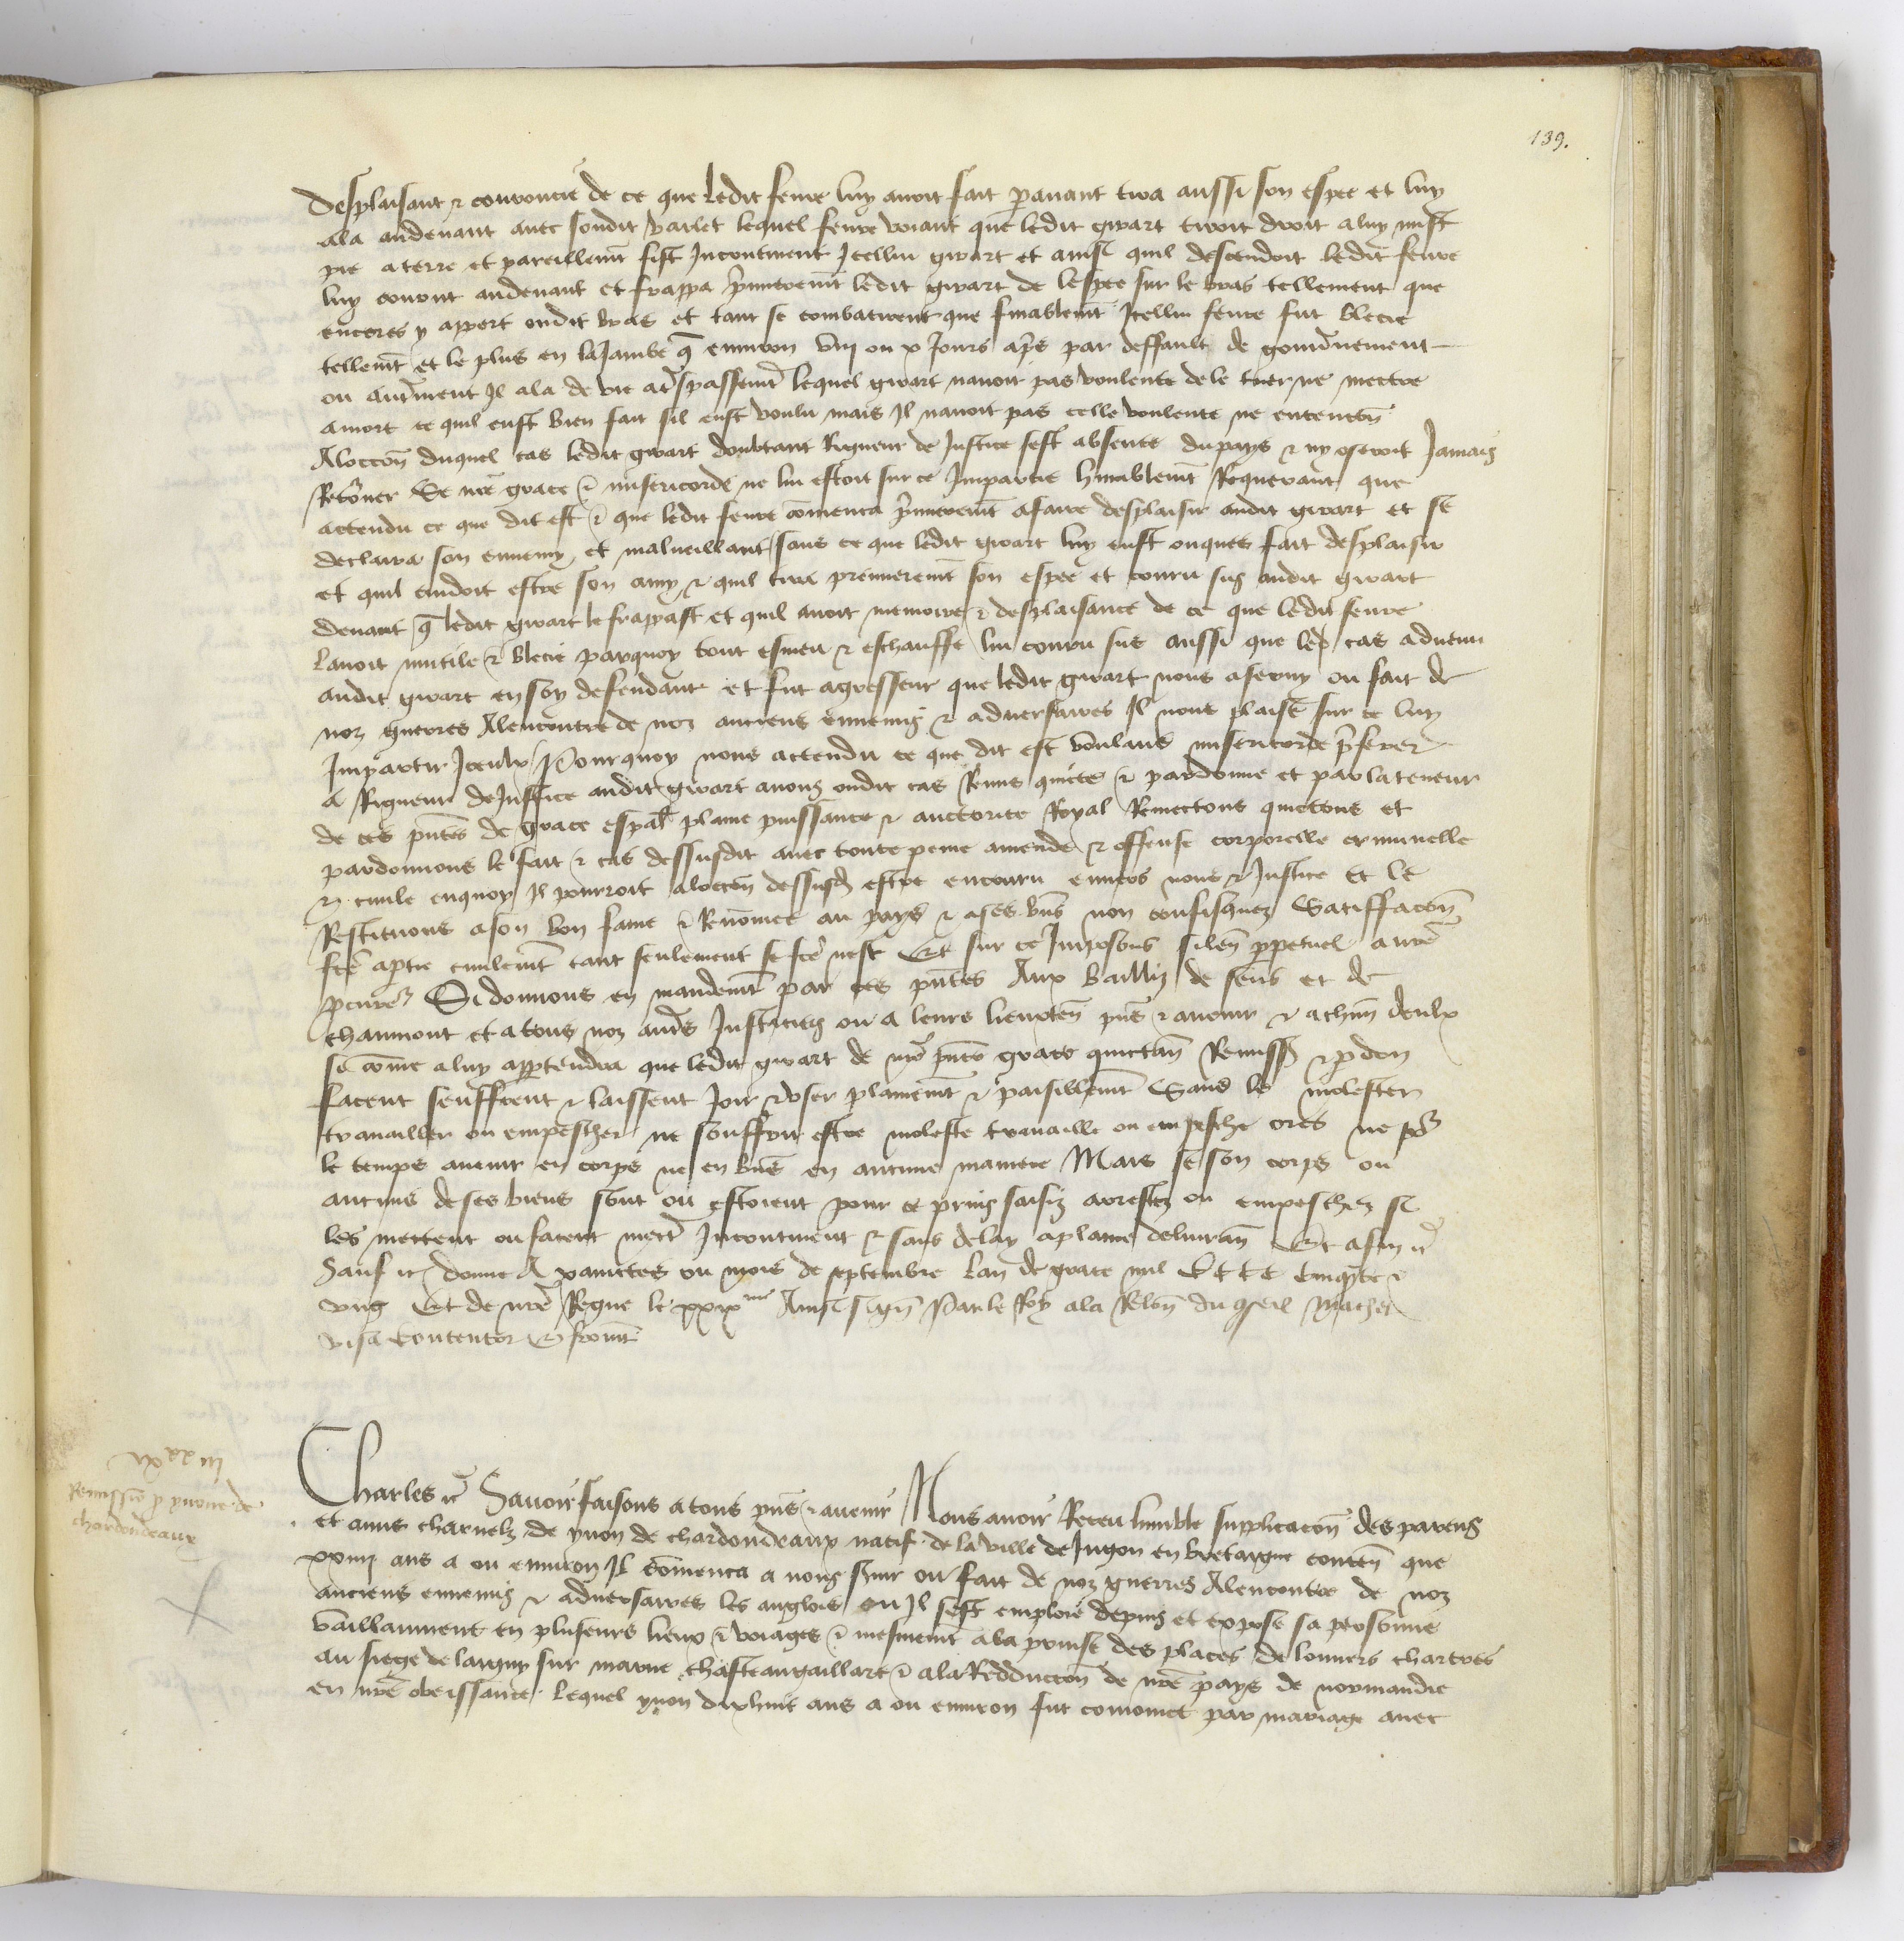 139.
Desplaisant & couroucie de ce que ledit fevre luy avoit fait paravant tira aussi son espee et luy
ala audevant avec sondit varlet lequel fevre voiant que ledit gwart tiroit droit a luy mist
pie a terre et pareillemt fist Incontinent Icellui gwart et ainsi quil descendoit ledit fevre
luy courut audevant et frappa prmieremt ledit gwart de lespee sur le bras tellement que
encores y appert oudit bras et tant se combatirent que finablemt Icellui fevre fut blecie
tellemt et le plus en la Jambe q environ viij ou x Jours apres par deffault de gouvrnement
ou autrment Il ala de vie a trspassemt lequel gwart navoit pas voulente de le tuer ne mectre
a mort ce quil eust bien fait sil eust voulu mais Il navoit pas celle voulente ne entencon
A loccon duquel cas ledit gwart doubtant Rigueur de Justice sest absente du pays & ny oseroit Jamais
Retorner Se nre grace & misericorde ne lui estoit sur ce Impartie humblemt Requerant que
actendu ce que dit est & que ledit fevre comenca prmieremt a faire desplaisir audit gwart et se
declaira son ennemy et malveillant sans ce que ledit gwart luy eust onques fait desplaisir
et quil cuidoit estre son amy & quil tira premieremt son espee et couru sus audit gwart
devant q ledit gwart le frappast et quil avoit memoire & desplaisance de ce que ledit fevre
lavoit mutile & blecie parquoy tout esmeu & eschauffe lui couru sus aussi que led cas advenu
audit gwart en soy defendant et fut agresseur que ledit gwart nous a servy ou fait de
noz guerres Alencontre de noz anciens ennemis & adversaires Il nous plaise sur ce luy
Impartir Iceulx Pourquoy nous actendu ce que dit est voulans misericorde preferer
A Rigueur de Justice audit gwart avons oudit cas Remis quicte & pardonne et par la teneur
de ces pntes de grace espal plaine puissance & auctorite Royal Remectons quictons et
pardonnons le fait & cas dessusdit avec toute peine amende & offense corporelle criminelle
& civile enquoy Il pourroit a loccon dessusd estre encouru envers nous & Justice Et le
Restituons a son bon fame & Renomee au pays & a ses bns non confisquez Satiffacon
fcte a prtie civilemt tant seulement se fcte nest Et sur ce Imposons silen prpetuel a nre
procureur Si donnons en mandemt par ces pntes Aux bailliz de sens et de
chaumont et a tous noz autrs Justiciers ou a leurs lieuxten pns & avenir & a chun deulx
si come a luy appartendra que ledit gwart de nre pnte grace quictan Remiss & pdon
facent seuffrent & laissent Joir & user plainemt & paisiblemt Sans le molester
travailler ou empescher ne souffrir estre moleste travaille ou empesche ores ne por
le temps avenir en corps ne en bns en aucune maniere Mais se son corps ou
aucuns de ses biens sont ou estoient pour ce prins saisiz arrestez ou empeschez si
les mettent ou facent mectr Incontinent & sans delay a plaine delivran Et afin &c
Sauf &c donne A xainctes ou mois de septembre lan de grace mil CCCC Cinqte &
ung Et de nre Regne le xxixme Ainsi sign Par le Roy a la Relon du qseil
visa Contentor
ixxx iij
Remissio p yvone de
chardondeaux
Charles &c Savoir faisons a tous pns & avenir Nous avoir Receu humble supplicacon des parens
et amis charnelz de yvon de chardondeaux natif de la ville de Jugon en bretaigne conten que
xxiiij ans a ou environ Il comenca a nous svir ou fait de noz guerres Alencontre de noz
anciens ennemis & adversaires les anglois ou Il sest emploie depuis et expose sa personne
vaillanment en pluseurs lieux & voiages & mesmemt a la prinse des places de louviers chartres
au siege de laigny sur marne chasteaugaillart & a la Redduccon de nre pays de normandie
en nre obeissance lequel yvon dixhuit ans a ou environ fut conioinct par mariage avec